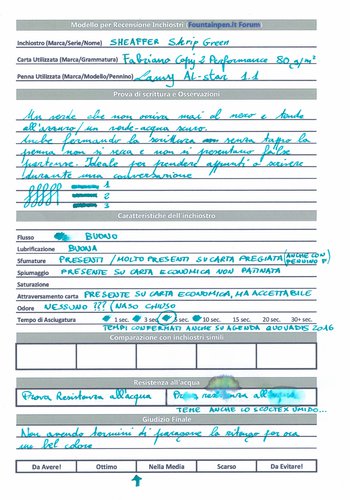 Modello per Recensione Inchiostri (Fountainpen.it Forum)
Inchiostro (Marca/Serie/Nome) SHEAFFER Skrip Green
Carta Utilizzata (Marca/Grammatura) Fabriano Copy 2 Performance 80 g/m²
Penna Utilizzata (Marca/Modello/Pennino) Lamy Al-star 1.1
Prova di scrittura e Osservazioni
Un verde che non arriva mai al nero e tende
all'azzurro/un verde-acqua scuro.
Anche fermando la scrittura senza tappo la
penna non si secca e non si presentano false
partenze. Ideale per prendere appunti o scrivere
durante una conversazione
1
2
3
Caratteristiche dell'inchiostro
Flusso BUONO
Lubrificazione BUONA
Sfumature PRESENTI / MOLTO PRESENTI SU CARTA PREGIATA (ANCHE CON PENNINO F)
Spiumaggio PRESENTE SU CARTA ECONOMICA NON PATINATA
Saturazione
Attraversamento carta PRESENTE SU CARTA ECONOMICA, MA ACCETTABILE
Odore NESSUNO ??? (NASO CHIUSO
Tempo di Asciugatura 1 sec. 3 sec. 10 sec. 15 sec. 20 sec. 30+ sec.
TEMPI CONFERMATI ANCHE SU AGENDA QUOVADIS 2016
Comparazione con inchiostri simili
Resistenza all'acqua
Prova Resistenza all'acqua Prova resistenza all'acqua
TEME ANCHE LO SCOTEX UMIDO...
Giudizio Finale
Non avendo termini di paragone lo ritengo per ora
un bel colore
Da Avere! Ottimo Nella Media Scarso Da Evitare!